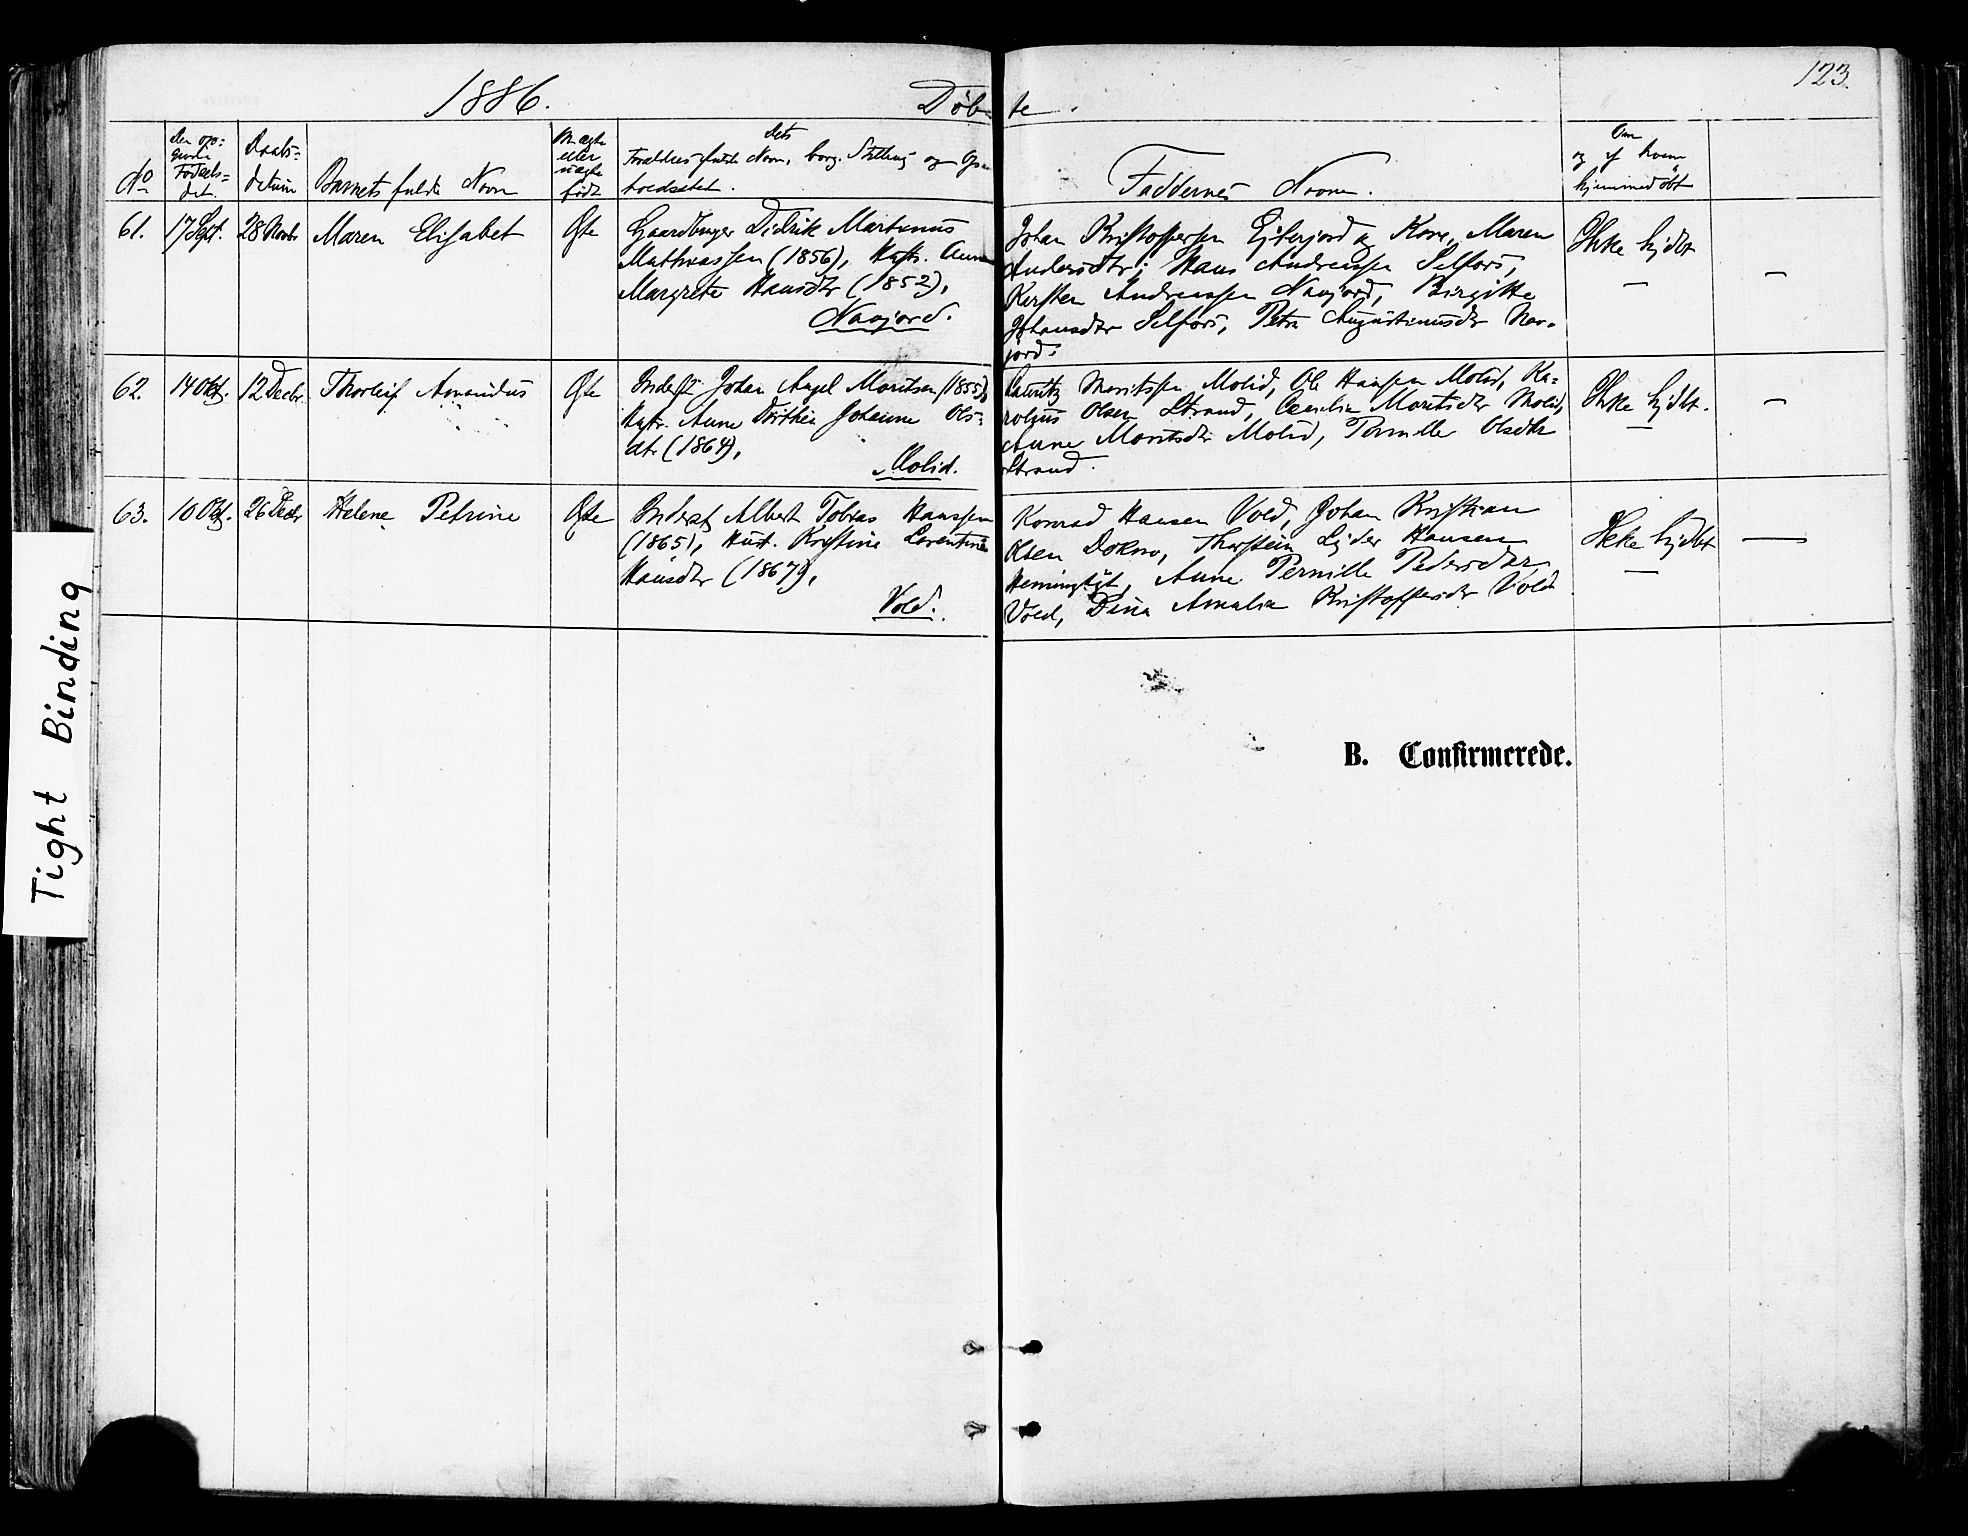 123.
1886.
Døbte.
No
Den op-
givne
Fødsels-
dat.
Daabs-
datum
Barnets fulde Navn
Om ægte
eller
uægte
født
Dets
Forældres fulde Navn, borg. Stilling og Op-
holdssted.
Faddernes Navne.
Om
og af hvem
hjemmedøbt
61.
17 Sept.
28 Novbr
Maren Elisabet
Ægte
Gaardbruger Didrik Martinus
Mathiassen (1856), Hustr. Anne
Margrete Hansdtr (1852),
Navjord.
Johan Kristoffersen Ytterjord og Kone, Maren
Andersdtr; Hans Andreassen Selfors,
Kersten Andreassen Navjord, Birgitte
Johansdtr Selfors, Petra Augustinusdtr Nav-
jord.
Ikke hjdbt
—
—
62.
14 Okt.
12 Decbr.
Thorleif Amandus
Ægte
Inderst Johan Angel Moritsen (1855),
Hustr. Anne Dorthea Johanne Ols-
dtr. (1864),
Molid.
Lauritz Moritssen Molid, Ole Hansen Molid, Ka-
rolius Olsen Strand, Cecilia Moritsdtr Molid,
Anne Moritsdtr Molid, Pernille Olsdtr
Strand.
Ikke hjdbt.
—
—
63.
10 Okt.
26 Decbr
Helene Petrine
Ægte
Inderst Albert Tobias Hanssen
(1865), Hust. Kristine Lorentine
Hansdtr (1867),
Vold.
Konrad Hansen Vold, Johan Kristian
Olsen Dokmo, Thorstein Lyder Hansen
Anne Pernille Pedersdtr
Vold, Dina Amalia Kristoffersdtr Vold
Ikke hjdbt
—
—
B. Confirmerede.
Tight Binding